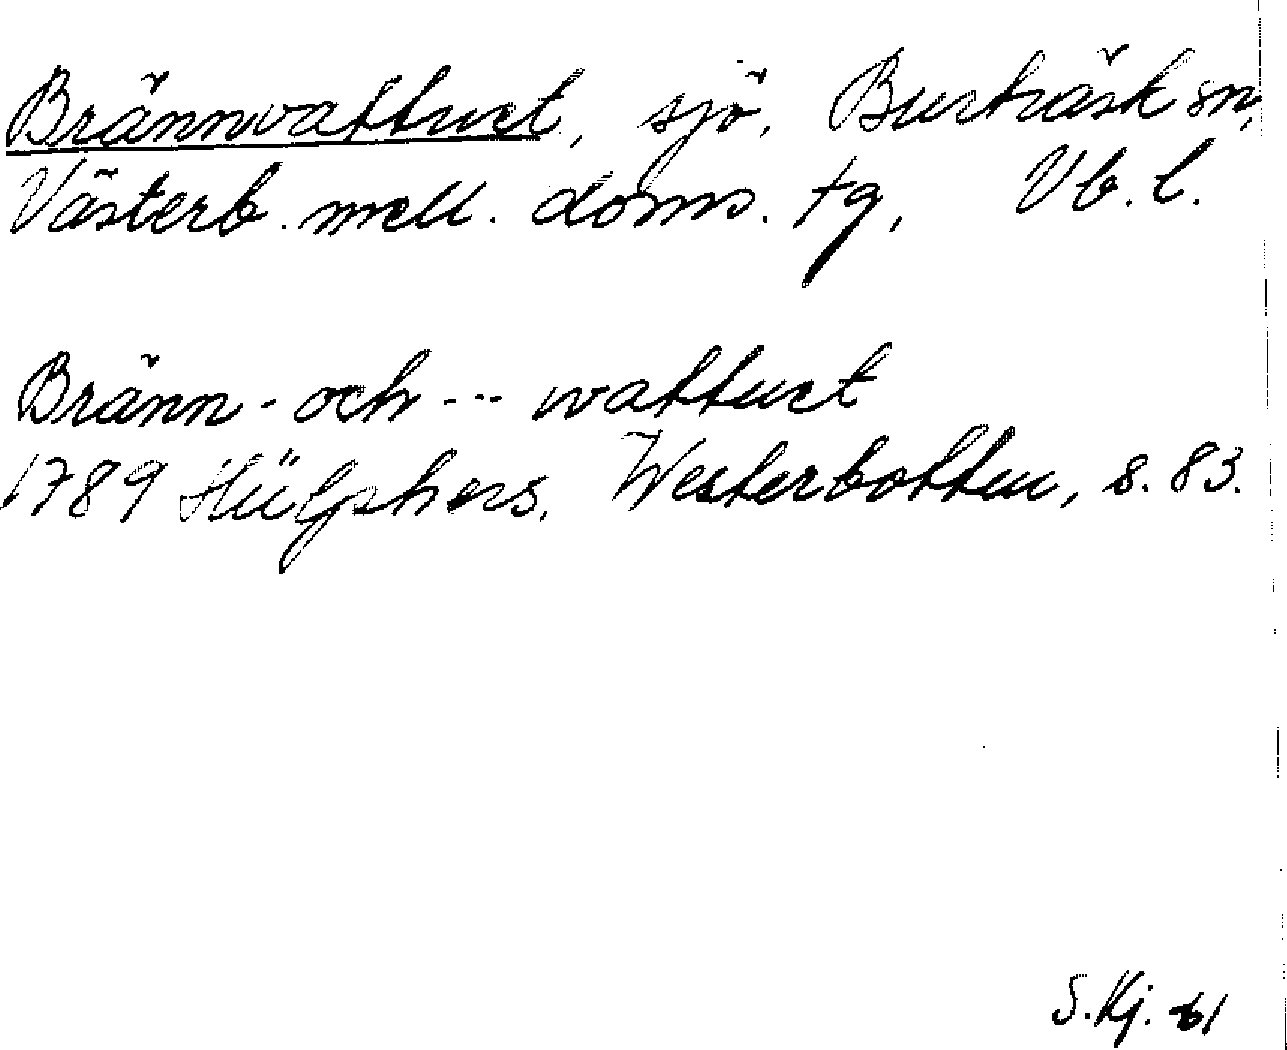 Brännvattnet, sjö, Burträsk sn,
Västerb. mell. doms. tg, Vb. l.
Bränn- och --- wattnet
1789 Hülphers, Westerbotten, s. 83.
S. Kj. 61